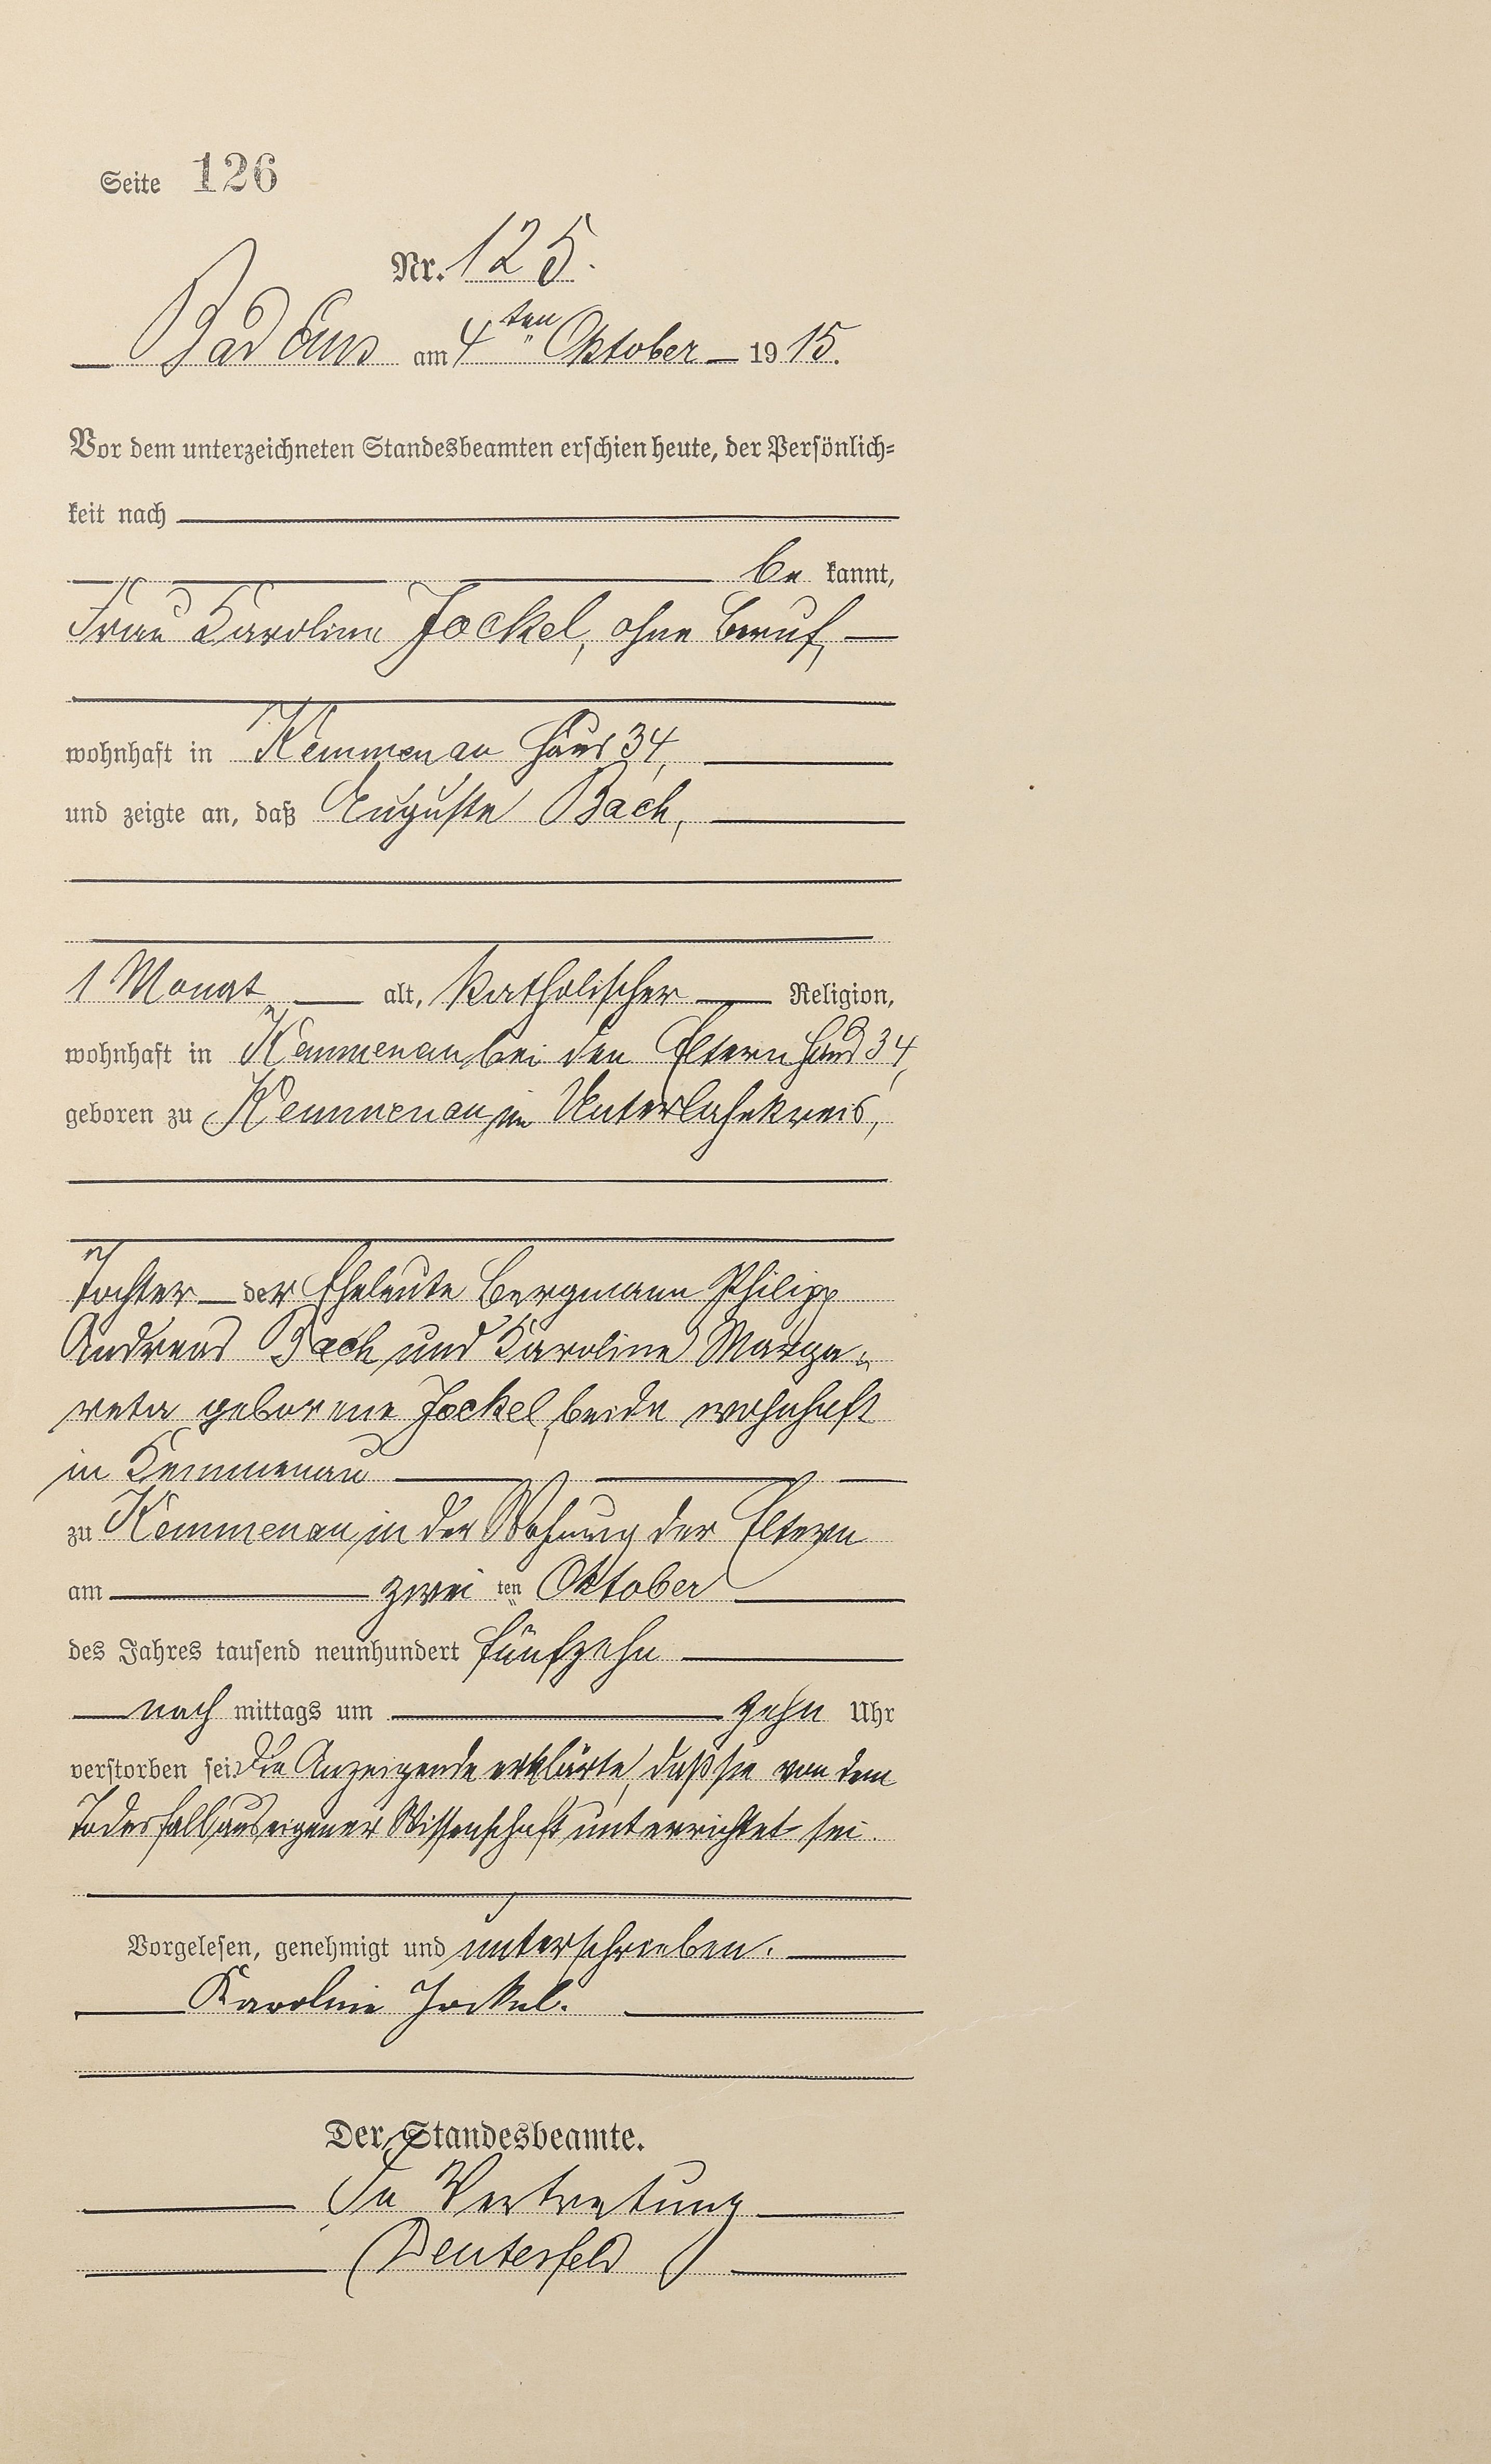 Seite 126
Nr. 125.
Bad Ems am 4ten Oktober 1915.
Vor dem unterzeichneten Standesbeamten erschien heute, der Persönlich-
keit nach
be kannt,
Frau Karoline Jockel, ohne Beruf,
wohnhaft in Kemmenau Haus 34,
und zeigte an, daß Auguste Bach,
1 Monat alt, katholischer Religion,
wohnhaft in Kemmenau bei den Eltern Haus 34,
geboren zu Kemmenau im Unterlahnkreis,
Tochter der Eheleute Bergmann Philipp
Andreas Bach und Karoline Marga-
reta geborene Jockel, beide wohnhaft
in Kemmenau
zu Kemmenau, in der Wohnung der Eltern
am zwei ten Oktober
des Jahres tausend neunhundert fünfzehn
nach mittags um zehn Uhr
verstorben sei. Die Anzeigende erklärte, daß sie von dem
Todesfall aus eigener Wissenschaft unterrichtet sei.
Vorgelesen, genehmigt und unterschrieben.
Karoline Jockel.
Der Standesbeamte.
In Vertretung
Deutesfeld